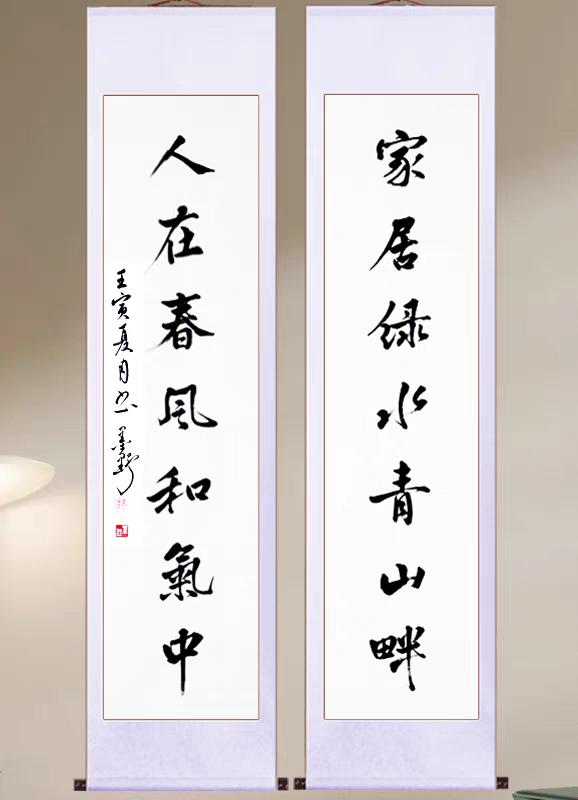 家居绿水青山畔
人在春风和氣中
壬寅夏月书墨野